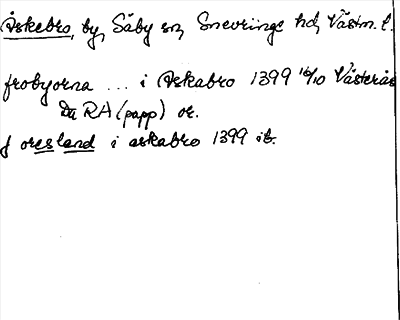 Åskebro, by, Säby sn, Snevringe hd, Västm. l.
frobyorna ... i Askabro 1399 16/10 Västerås
Da RA (papp) or.
J oresland i askabro 1399 ib.